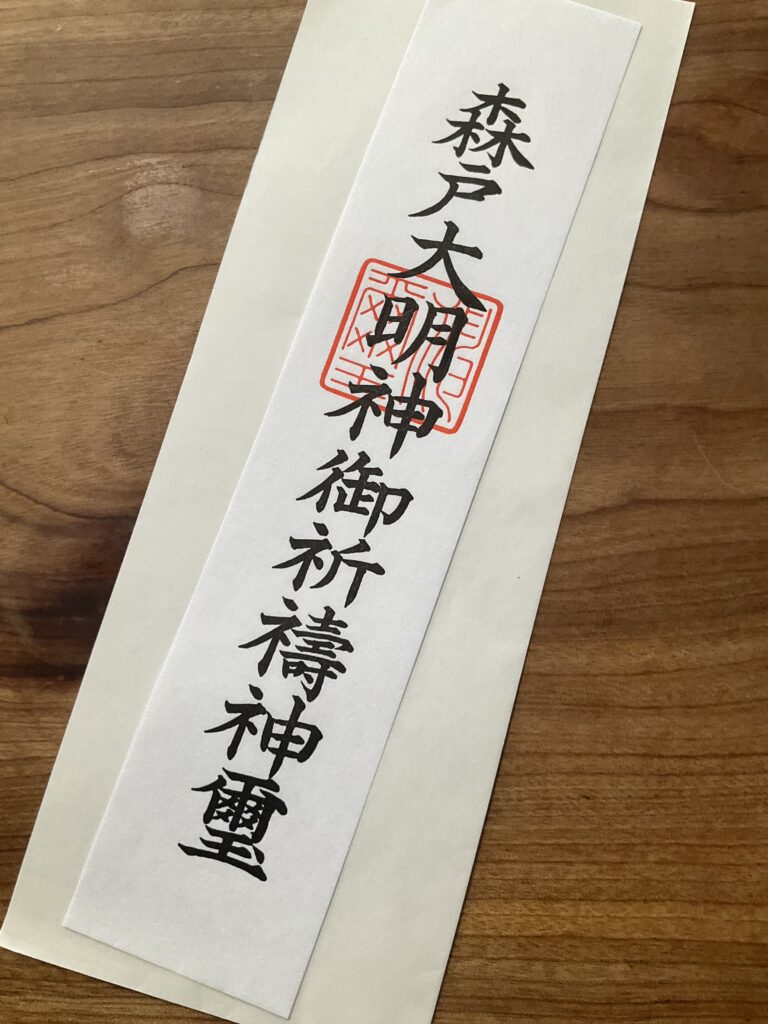 森戸大明神御祈禱神璽